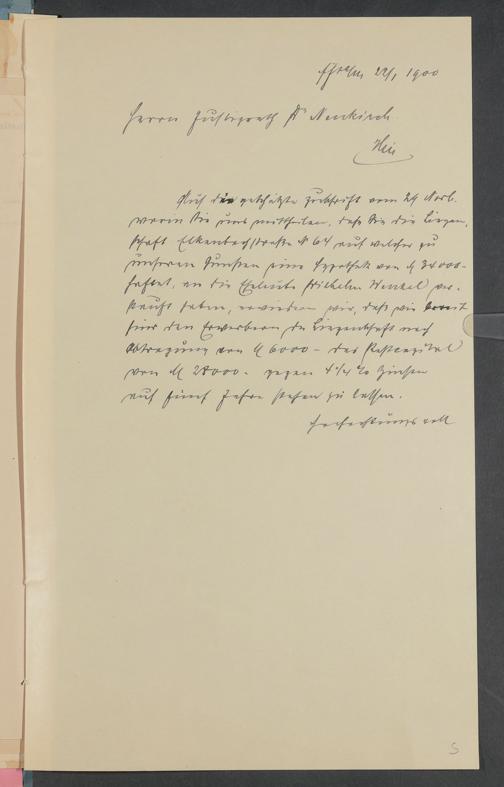 Ffrt a/m 22/1 1900
Herrn Justizrath Dr Neukirch
Hier
Auf die geschätzte Zuschrift vom 24 Novb.
worin Sie uns mittheilen, daß Sie die Liegen-
schaft Elkenbachstraße № 64 auf welcher zu
unseren Gunsten eine Hypothek von M 34000-
haftet, an die Eheleute Wilhelm Wenzel ver-
kauft haben, erwiedern wir, daß wir bereit
sind den Erwerbern der Liegenschaft nach
Abtragung von M 6000- das Restcapital
von M 28000- gegen 4 1/4 % Zinsen
auf fünf Jahre stehen zu lassen.
Hochachtungsvoll
S